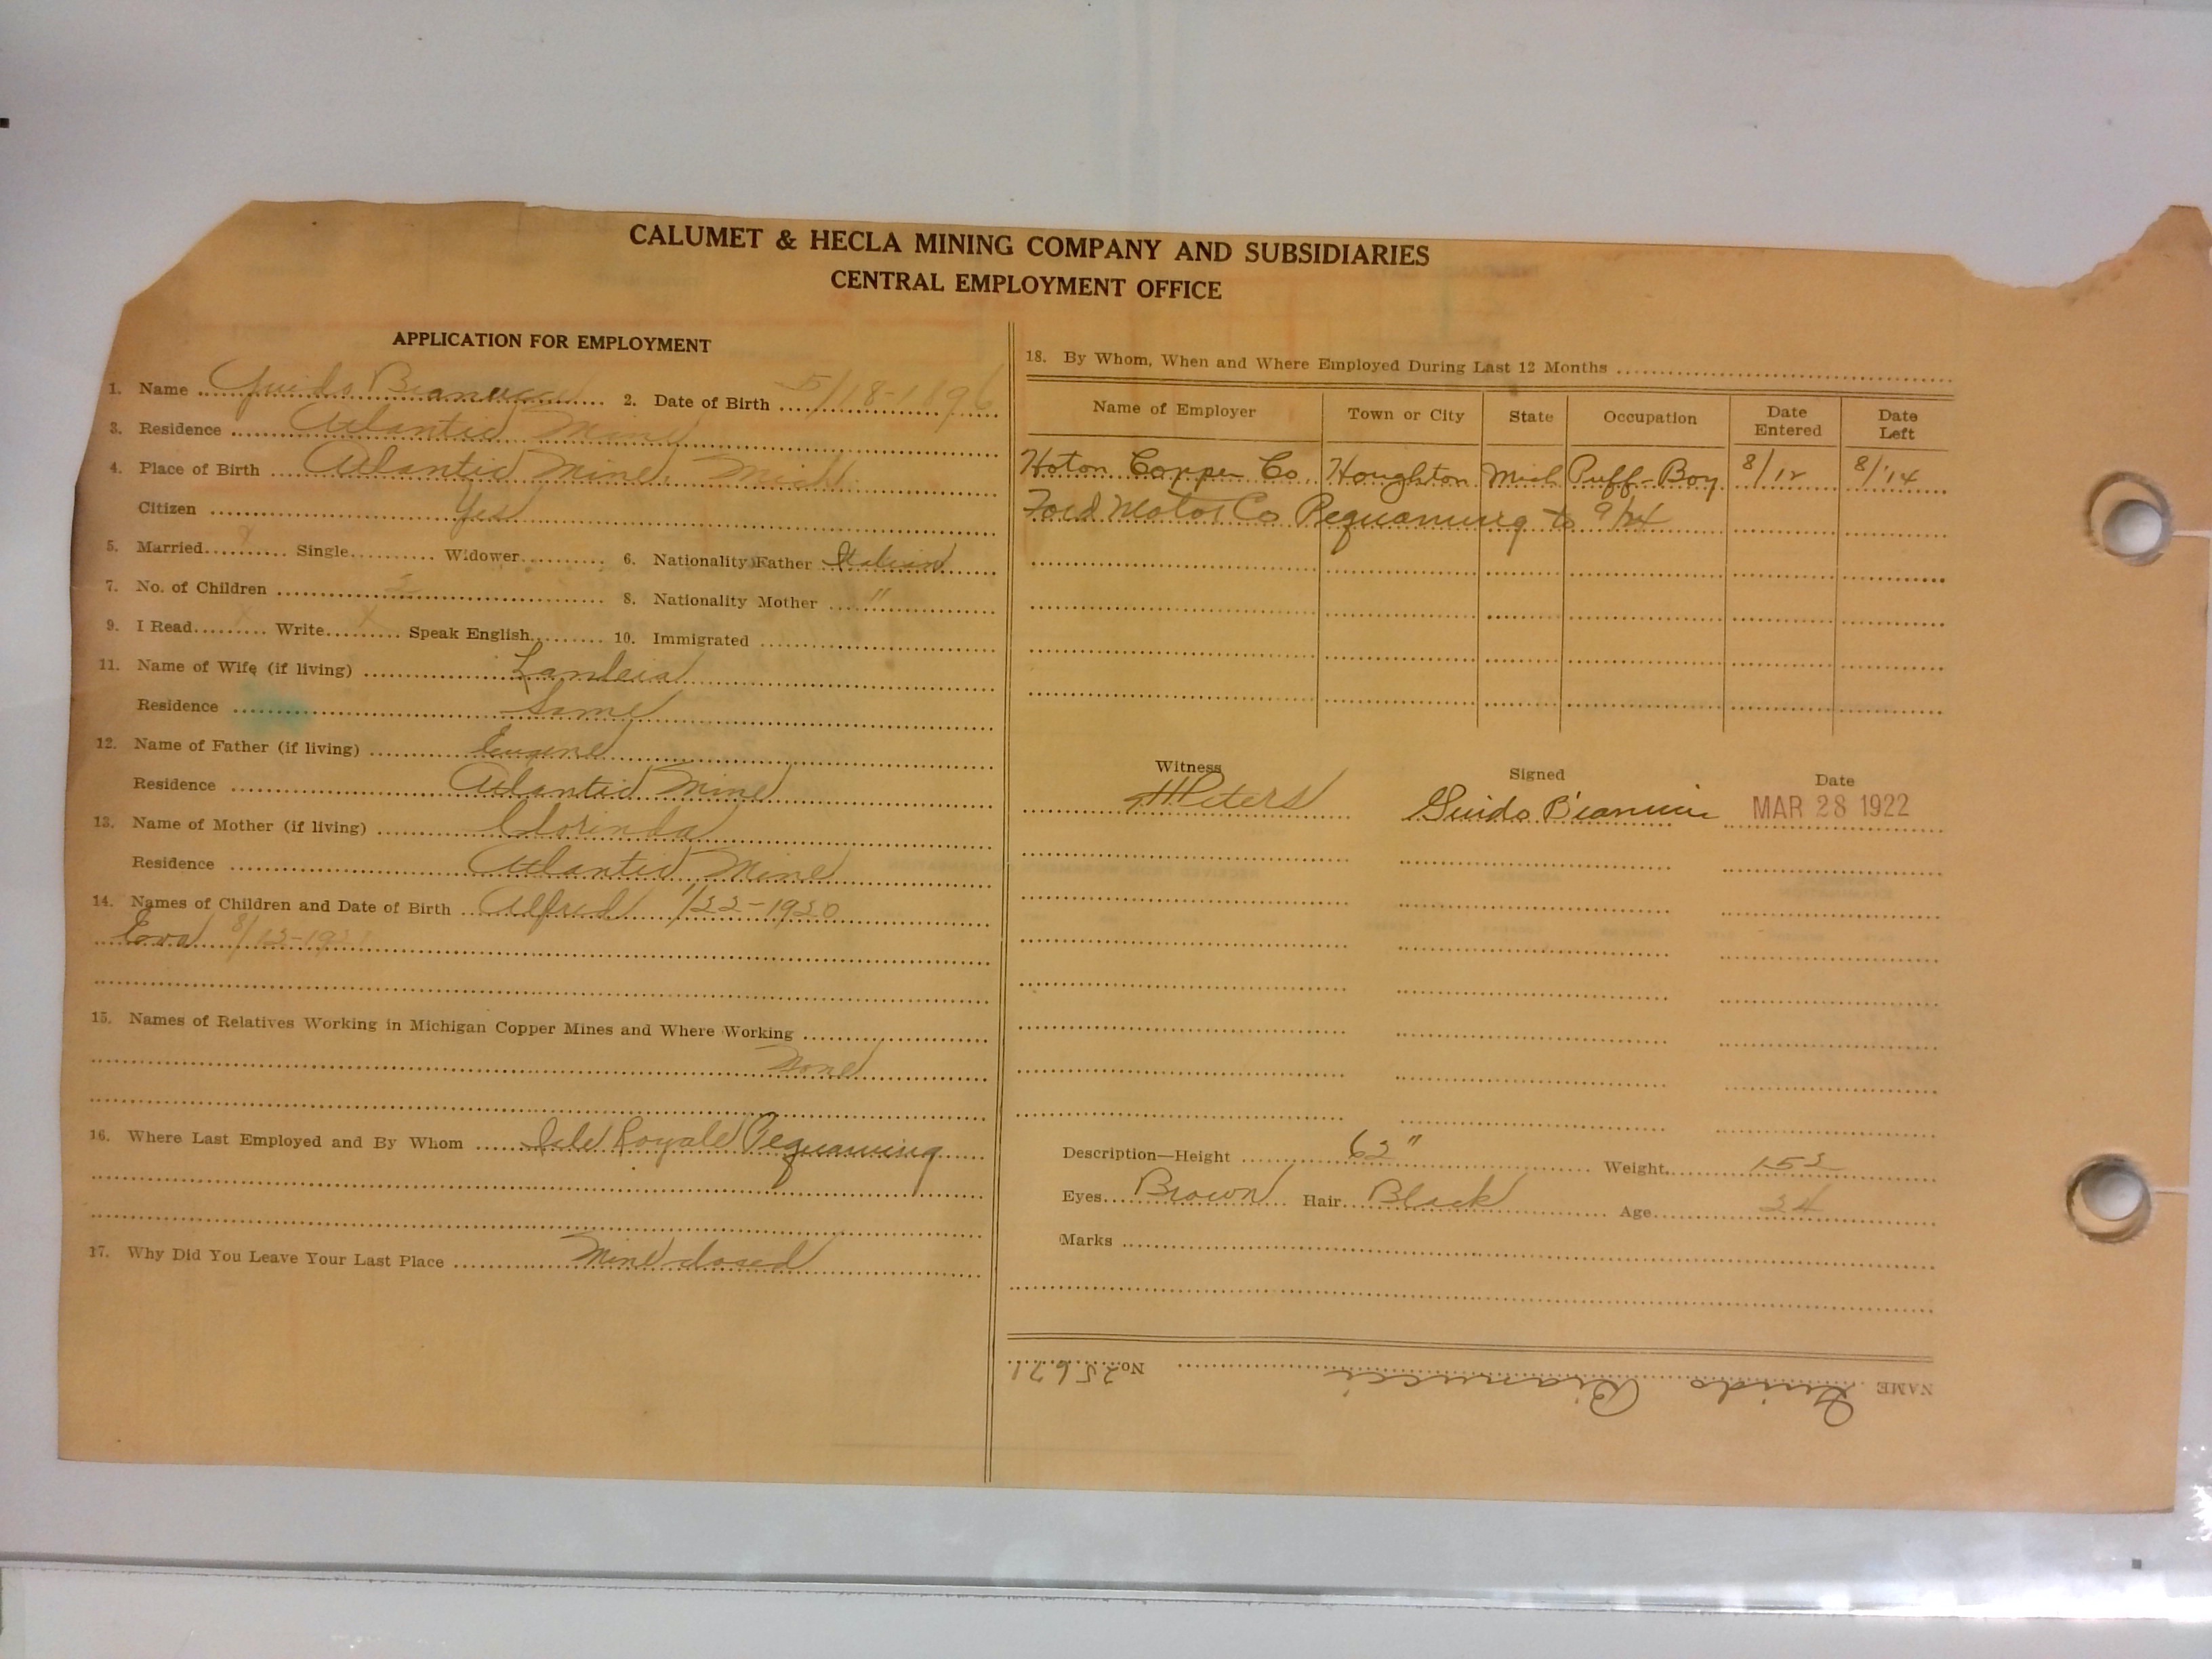 CALUMET & HECLA MINING COMPANY AND SUBSIDIARIES
CENTRAL EMPLOYMENT OFFICE
APPLICATION FOR EMPLOYMENT
1. Name Guido Bianucci 2. Date of Birth 5/18-1896
3. Residence Atlantic Mine
4. Place of Birth Atlantic Mine, Mich.
Citizen Yes
5. Married X Single Widower 6. Nationality Father Italian
7. No. of Children 2 8. Nationality Mother "
9. I Read X Write X Speak English 10. Immigrated
11. Name of Wife (if living)
Residence Same
12. Name of Father (if living) Eugene
Residence Atlantic Mine
13. Name of Mother (if living) Clorinda
Residence Atlantic Mine
14. Names of Children and Date of Birth Alfred 1/22-1920
8/12-1921
15. Names of Relatives Working in Michigan Copper Mines and Where Working
None
16. Where Last Employed and By Whom Isle Royale Pequaming
17. Why Did You Leave Your Last Place Mine closed
18. By Whom, When and Where Employed During Last 12 Months
Name of Employer Town or City State Occupation Date Entered Date Left
Hoton Copper Co. Houghton Mich Puff-Boy 8/12 8/14
Ford Motor Co Pequaming to 9/24
Witness Signed Date
Peters Guido Bianucci MAR 28 1922
Description—Height 62" Weight 152
Eyes Brown Hair Black Age 24
Marks
NAME Guido Bianucci No. 25671